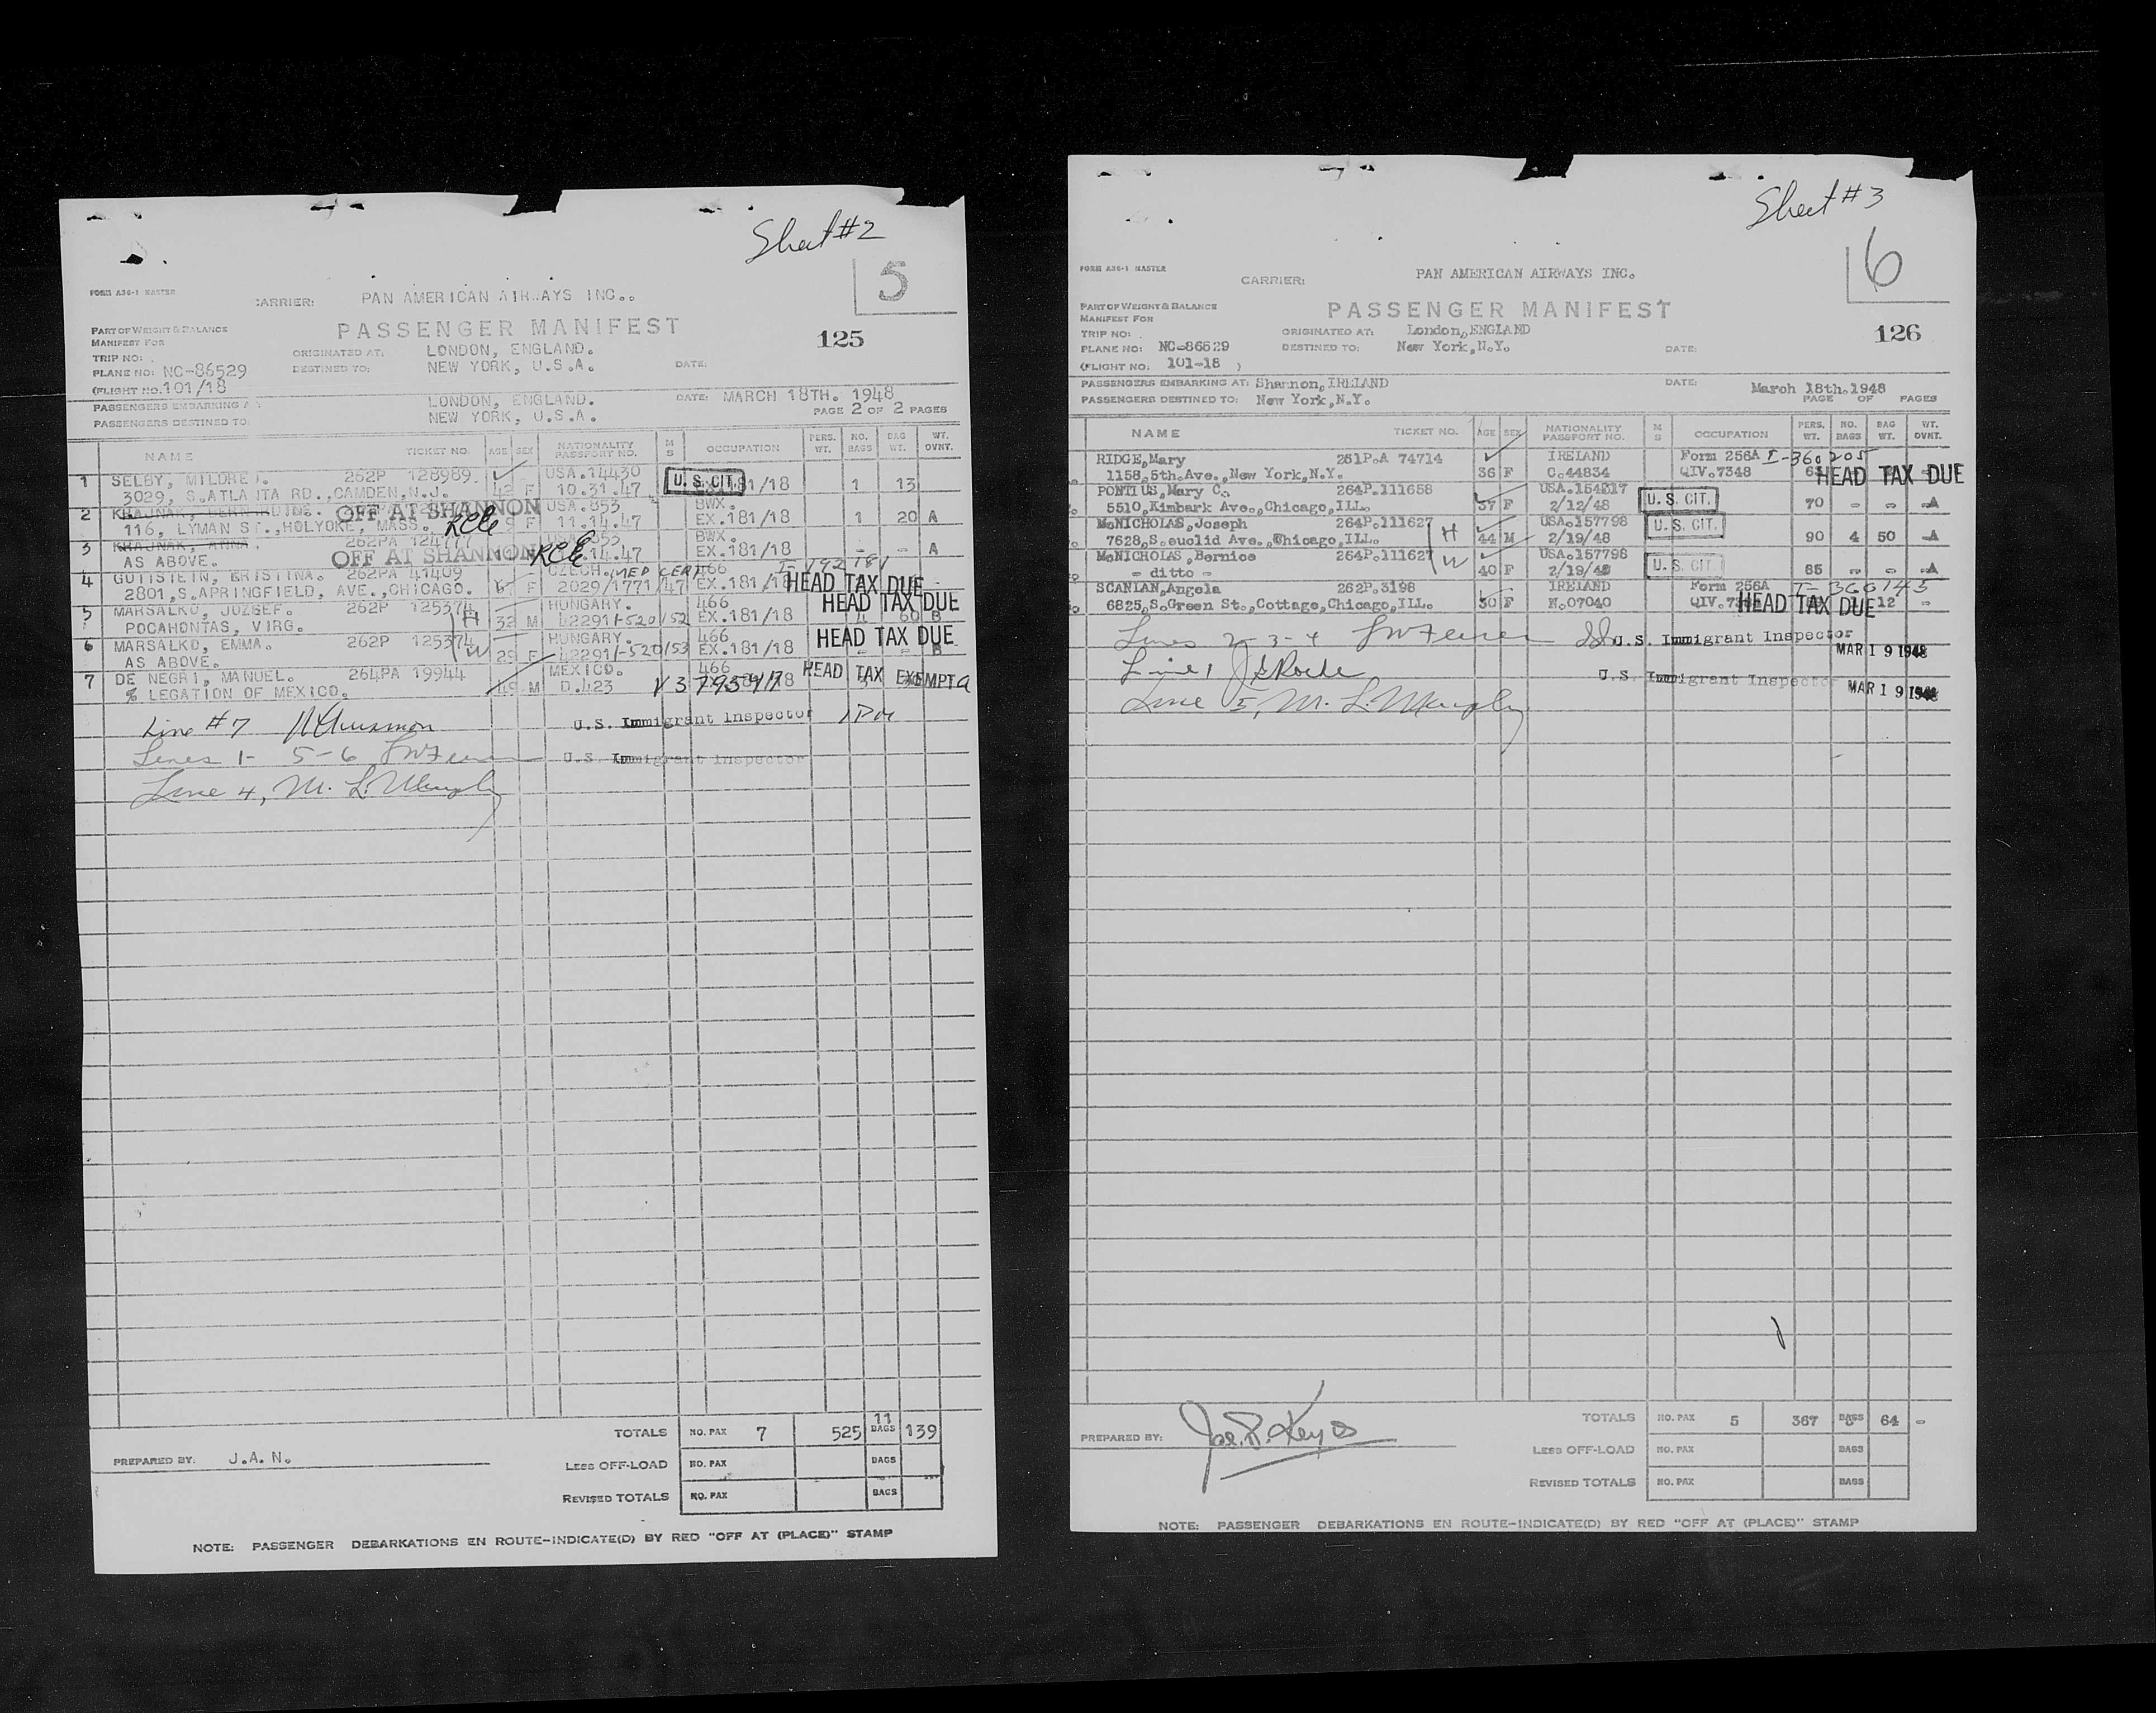 Sheet #2
5
FORM A36-1 MASTER
CARRIER: PAN AMERICAN AIRWAYS INC..
PASSENGER MANIFEST
125
PART OF WEIGHT & BALANCE
MANIFEST FOR
TRIP NO:
ORIGINATED AT: LONDON, ENGLAND.
PLANE NO: NC-86529
DESTINED TO: NEW YORK, U.S.A.
DATE:
(FLIGHT NO. 101/18
PASSENGERS EMBARKING A LONDON, ENGLAND. DATE: MARCH 18TH. 1948
PASSENGERS DESTINED TO: NEW YORK, U.S.A. PAGE 2 OF 2 PAGES
NAME TICKET NO. AGE SEX NATIONALITY PASSPORT NO. M S OCCUPATION PERS. WT. NO. BAGS BAG WT. WT. OVNT.
1 SELBY, MILDRED. 262P 128989. USA.14430
3029, S.ATLANTA RD.,CAMDEN,N.J. 42 F 10.31.47 U.S. CIT. 81/18 1 13
2 KRAJNAK, BERNARDINE. OFF AT SHANNON USA.853 BWX.
116, LYMAN ST.,HOLYOKE, MASS. RCG 9 F 11.14.47 EX.181/18 1 20 A
3 KRAJNAK, ANNA. 262PA BWX.
AS ABOVE. OFF AT SHANNON RCG .14.47 EX.181/18 - - A
4 GUTTSTEIN, KRISTINA. 262PA 41409 CZECH. MED CERT 466
2801,S.APRINGFIELD, AVE.,CHICAGO. 67 F 2029/1771/47 EX.181/18 HEAD TAX DUE
5 MARSALKO, JOZSEF. 262P 125374 H HUNGARY. 466 HEAD TAX DUE
POCAHONTAS, VIRG. 32 M 42291 I-520152 EX.181/18 4 60 B
6 MARSALKO, EMMA. 262P 125374 W HUNGARY. 466 HEAD TAX DUE
AS ABOVE. 29 F 42291 I-520153 EX.181/18 - - B
7 DE NEGRI, MANUEL. 264PA 19944 MEXICO. 466 HEAD TAX EXEMPT
% LEGATION OF MEXICO. 49 M D.423 V 3795417
Line #7 U.S. Immigrant Inspector
Lines 1- 5-6 U.S. Immigrant Inspector
Line 4, M. L. Murphy
TOTALS NO. PAX 7 525 11 BAGS 139
PREPARED BY: J.A.N.
LESS OFF-LOAD NO. PAX BAGS
REVISED TOTALS NO. PAX BAGS
NOTE: PASSENGER DEBARKATIONS EN ROUTE-INDICATE(D) BY RED "OFF AT (PLACE)" STAMP
Sheet #3
6
FORM A36-1 MASTER
CARRIER: PAN AMERICAN AIRWAYS INC.
PASSENGER MANIFEST
126
PART OF WEIGHT & BALANCE
MANIFEST FOR
TRIP NO:
ORIGINATED AT: London, ENGLAND
PLANE NO: NC-86529
DESTINED TO: New York, N.Y.
DATE:
(FLIGHT NO. 101-18 )
PASSENGERS EMBARKING AT: Shannon, IRELAND DATE: March 18th.1948
PASSENGERS DESTINED TO: New York,N.Y. PAGE OF PAGES
NAME TICKET NO. AGE SEX NATIONALITY PASSPORT NO. M S OCCUPATION PERS. WT. NO. BAGS BAG WT. WT. OVNT.
RIDGE,Mary 251P.A 74714 IRELAND Form 256A I-360205
1158,5th.Ave.,New York,N.Y. 36 F C.44834 QIV.7348 HEAD TAX DUE
PONTIUS,Mary C. 264P.111658 USA.154217 U.S. CIT.
5510,Kimbark Ave.,Chicago,ILL. 37 F 2/12/48 70 - - -A
McNICHOLAS,Joseph 264P.111627 H USA.157798 U.S. CIT.
7628,S.euclid Ave.,Chicago,ILL. 44 M 2/19/48 90 4 50 -A
McNICHOLAS,Bernice 264P.111627 W USA.157798 U.S. CIT.
- ditto - 40 F 2/19/48 85 - - -A
SCANLAN,Angela 262P.3198 IRELAND Form 256A I-360145
6825,S.Green St.,Cottage,Chicago,ILL. 30 F N.07040 QIV. HEAD TAX DUE 12 -
Lines 2-3-4 U.S. Immigrant Inspector
MAR 19 1948
Line 1 U.S. Immigrant Inspector
MAR 19 1948
Line 5, M. L. Murphy
TOTALS NO. PAX 5 367 BAGS 64 -
PREPARED BY:
LESS OFF-LOAD NO. PAX BAGS
REVISED TOTALS NO. PAX BAGS
NOTE: PASSENGER DEBARKATIONS EN ROUTE-INDICATE(D) BY RED "OFF AT (PLACE)" STAMP